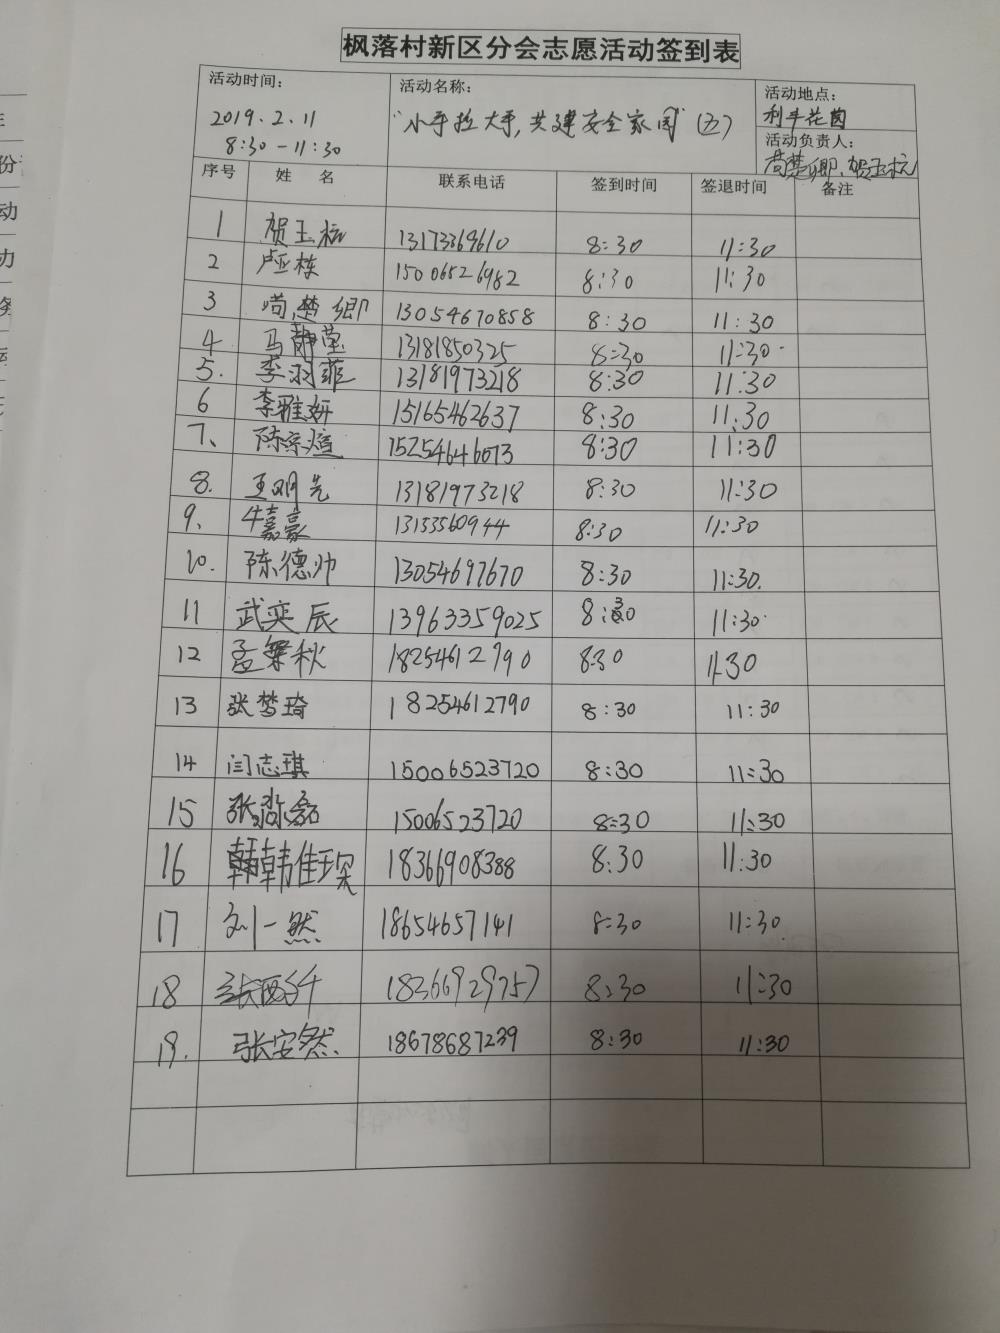 枫落村新区分会志愿活动签到表
活动时间：
2019.2.11
8:30-11:30
活动名称：
"小手拉大手,共建安全家园"(五)
活动地点：
利丰花园
活动负责人：
苟楚卿、贺玉杭
序号 姓名 联系电话 签到时间 签退时间 备注
1 贺玉杭 13173369610 8:30 11:30
2 卢亚栋 15006526982 8:30 11:30
3 苟楚卿 13054670858 8:30 11:30
4 马静莹 13181850325 8:30 11:30
5. 李羽菲 13181973218 8:30 11:30
6 李雅妍 15165462637 8:30 11:30
7、 陈宗煊 15254646073 8:30 11:30
8. 王明先 13181973218 8:30 11:30
9、 牛嘉豪 13153560944 8:30 11:30
10. 陈德帅 13054697670 8:30 11:30.
11 武奕辰 13963359025 8:30 11:30
12 孟秋 18254612790 8:30 11:30
13 张梦琦 18254612790 8:30 11:30
14 闫志琪 15006523720 8:30 11:30
15 张磊 15006523720 8:30 11:30
16 韩佳琛 18366908388 8:30 11:30
17 刘一然 18654657141 8:30 11:30
18 18266929757 8:30 11:30
19. 张安然 18678687239 8:30 11:30
份
动
办